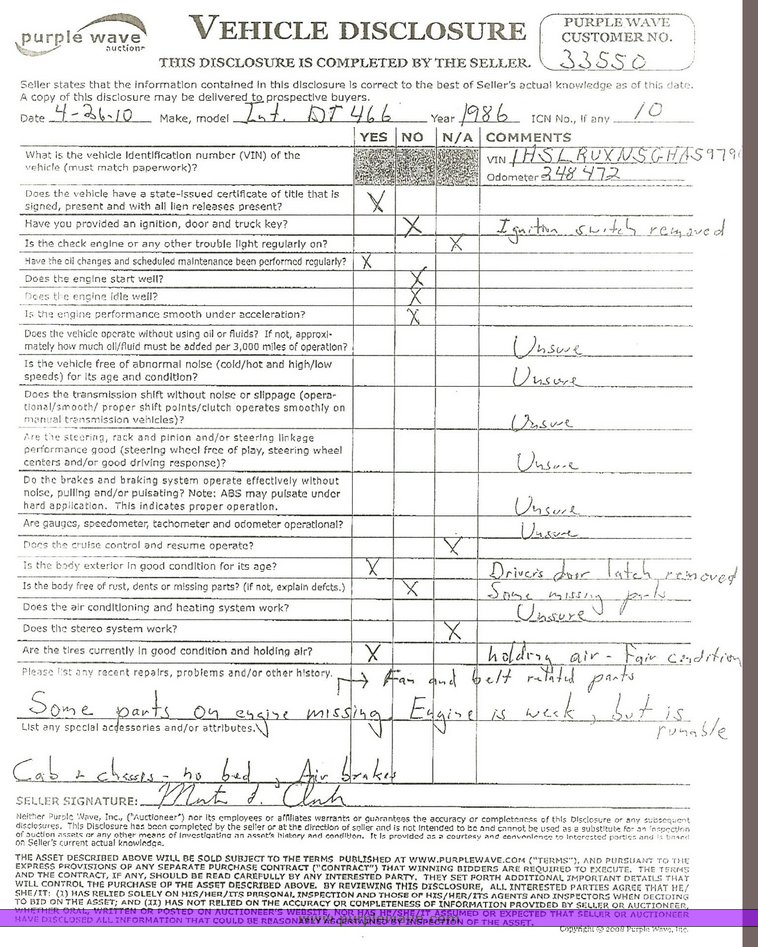 purple wave
auction
VEHICLE DISCLOSURE
THIS DISCLOSURE IS COMPLETED BY THE SELLER.
PURPLE WAVE
CUSTOMER NO.
33550
Seller states that the information contained in this disclosure is correct to the best of Seller's actual knowledge as of this date.
A copy of this disclosure may be delivered to prospective buyers.
Date 4-26-10 Make, model Int. DT 466 Year 1986 ICN No., if any 10
YES NO N/A COMMENTS
What is the vehicle identification number (VIN) of the
vehicle (must match paperwork)?
VIN
Odometer 348472
Does the vehicle have a state-issued certificate of title that is
signed, present and with all lien releases present? X
Have you provided an ignition, door and truck key? X Ignition switch removed
Is the check engine or any other trouble light regularly on? X
Have the oil changes and scheduled maintenance been performed regularly? X
Does the engine start well? X
Does the engine idle well? X
Is the engine performance smooth under acceleration? X
Does the vehicle operate without using oil or fluids? If not, approxi-
mately how much oil/fluid must be added per 3,000 miles of operation? Unsure
Is the vehicle free of abnormal noise (cold/hot and high/low
speeds) for its age and condition? Unsure
Does the transmission shift without noise or slippage (opera-
tional/smooth/ proper shift points/clutch operates smoothly on
manual transmission vehicles)? Unsure
Are the steering, rack and pinion and/or steering linkage
performance good (steering wheel free of play, steering wheel
centers and/or good driving response)? Unsure
Do the brakes and braking system operate effectively without
noise, pulling and/or pulsating? Note: ABS may pulsate under
hard application. This indicates proper operation. Unsure
Are gauges, speedometer, tachometer and odometer operational? Unsure
Does the cruise control and resume operate? X
Is the body exterior in good condition for its age? X Drivers door latch removed
Is the body free of rust, dents or missing parts? (if not, explain defcts.) X Some missing parts
Does the air conditioning and heating system work? Unsure
Does the stereo system work? X
Are the tires currently in good condition and holding air? X holding air - Fair condition
Please list any recent repairs, problems and/or other history. → Fan and belt related parts
Some parts on engine missing. Engine is weak, but is
runable
List any special accessories and/or attributes.
Cab & chassis - no bed, Air brakes
SELLER SIGNATURE:
Neither Purple Wave, Inc., ("Auctioneer") nor its employees or affiliates warrants or guarantees the accuracy or completeness of this Disclosure or any subsequent
disclosures. This Disclosure has been completed by the seller or at the direction of seller and is not intended to be and cannot be used as a substitute for an inspection
of auction assets or any other means of investigating an asset's history and condition. It is provided as a courtesy and convenience to interested parties and is based
on Seller's current actual knowledge.
THE ASSET DESCRIBED ABOVE WILL BE SOLD SUBJECT TO THE TERMS PUBLISHED AT WWW.PURPLEWAVE.COM ("TERMS"), AND PURSUANT TO THE
EXPRESS PROVISIONS OF ANY SEPARATE PURCHASE CONTRACT ("CONTRACT") THAT WINNING BIDDERS ARE REQUIRED TO EXECUTE. THE TERMS
AND THE CONTRACT, IF ANY, SHOULD BE READ CAREFULLY BY ANY INTERESTED PARTY. THEY SET FORTH ADDITIONAL IMPORTANT DETAILS THAT
WILL CONTROL THE PURCHASE OF THE ASSET DESCRIBED ABOVE. BY REVIEWING THIS DISCLOSURE, ALL INTERESTED PARTIES AGREE THAT HE/
SHE/IT: (I) HAS RELIED SOLELY ON HIS/HER/ITS PERSONAL INSPECTION AND THOSE OF HIS/HER/ITS AGENTS AND INSPECTORS WHEN DECIDING
TO BID ON THE ASSET; AND (II) HAS NOT RELIED ON THE ACCURACY OR COMPLETENESS OF INFORMATION PROVIDED BY SELLER OR AUCTIONEER,
WHETHER ORAL, WRITTEN OR POSTED ON AUCTIONEER'S WEBSITE, NOR HAS HE/SHE/IT ASSUMED OR EXPECTED THAT SELLER OR AUCTIONEER
HAVE DISCLOSED ALL INFORMATION THAT COULD BE REASONABLY ASCERTAINED BY INSPECTION OF THE ASSET.
www.purplewave.com
Copyright © 2008 Purple Wave, Inc.